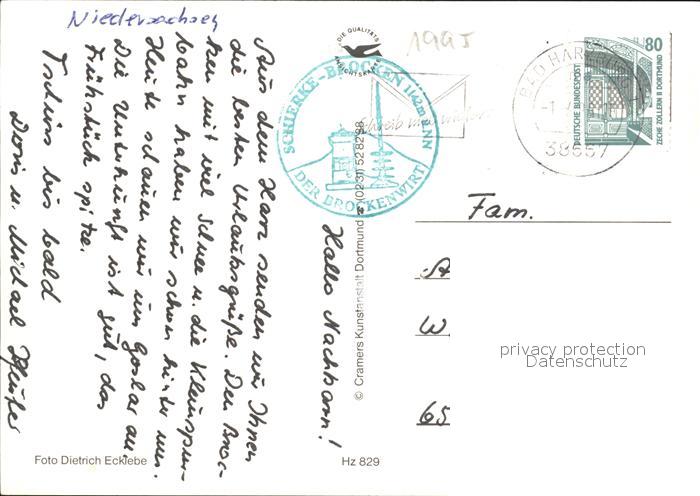 Niedersachsen
1995
DIE QUALITÄTS
ANSICHTSKARTE
SCHIERKE-BROCKEN 1142m ü. NN
DER BROCKENWIRT
Schreib mal wieder
BAD HARZBURG 1
38667
80
DEUTSCHE BUNDESPOST
ZECHE ZOLLERN II DORTMUND
Hallo Nachbarn!
Aus dem Harz senden wir Ihnen
die besten Urlaubsgrüße. Den Broc-
ken mit viel Schnee u. die Kleinspur-
bahn haben wir schon hinter uns.
Heute schauen wir uns Goslar an.
Die Unterkunft ist gut, das
Frühstück spitze.
Tschüss bis bald
Doris u. Michael
Fam.
A
W
65
privacy protection
Datenschutz
© Cramers Kunstanstalt Dortmund ☎ (02 31) 52 82 98
Foto Dietrich Ecklebe
Hz 829